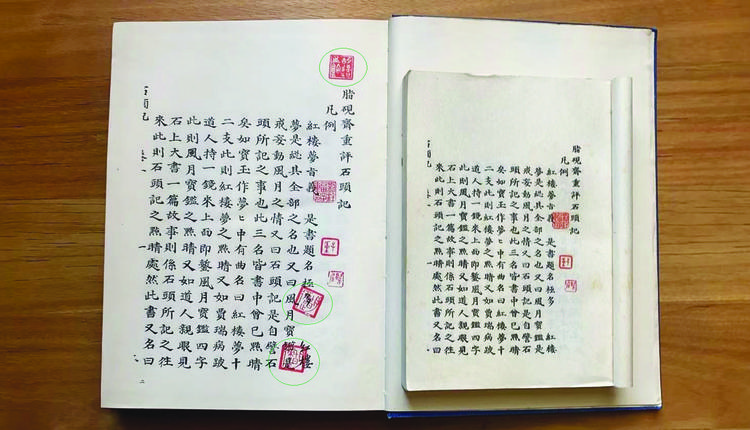 脂硯齋重評石頭記
凡例
紅樓夢旨義 是書題名極多 紅樓
夢是縂其全部之名也又曰風月寶鑑是
戒妄動風月之情又曰石頭記是自譬石
頭所記之事也此三名皆書中曾已㸃晴
矣如寶玉作夢〻中有曲名曰紅樓夢十
二支此則紅樓夢之㸃晴又如賈瑞病跛
道人持一鏡來上面即鏨風月寶鑑四字
此則風月寶鑑之㸃晴又如道人親眼見
石上大書一篇故事則係石頭所記之往
來此則石頭記之㸃晴處然此書又名曰
一
二
脂硯齋重評石頭記
凡例
紅樓夢旨義 是書題名極多 紅樓
夢是縂其全部之名也又曰風月寶鑑是
戒妄動風月之情又曰石頭記是自譬石
頭所記之事也此三名皆書中曾已㸃晴
矣如寶玉作夢〻中有曲名曰紅樓夢十
二支此則紅樓夢之㸃晴又如賈瑞病跛
道人持一鏡來上面即鏨風月寶鑑四字
此則風月寶鑑之㸃晴又如道人親眼見
石上大書一篇故事則係石頭所記之往
來此則石頭記之㸃晴處然此書又名曰
一